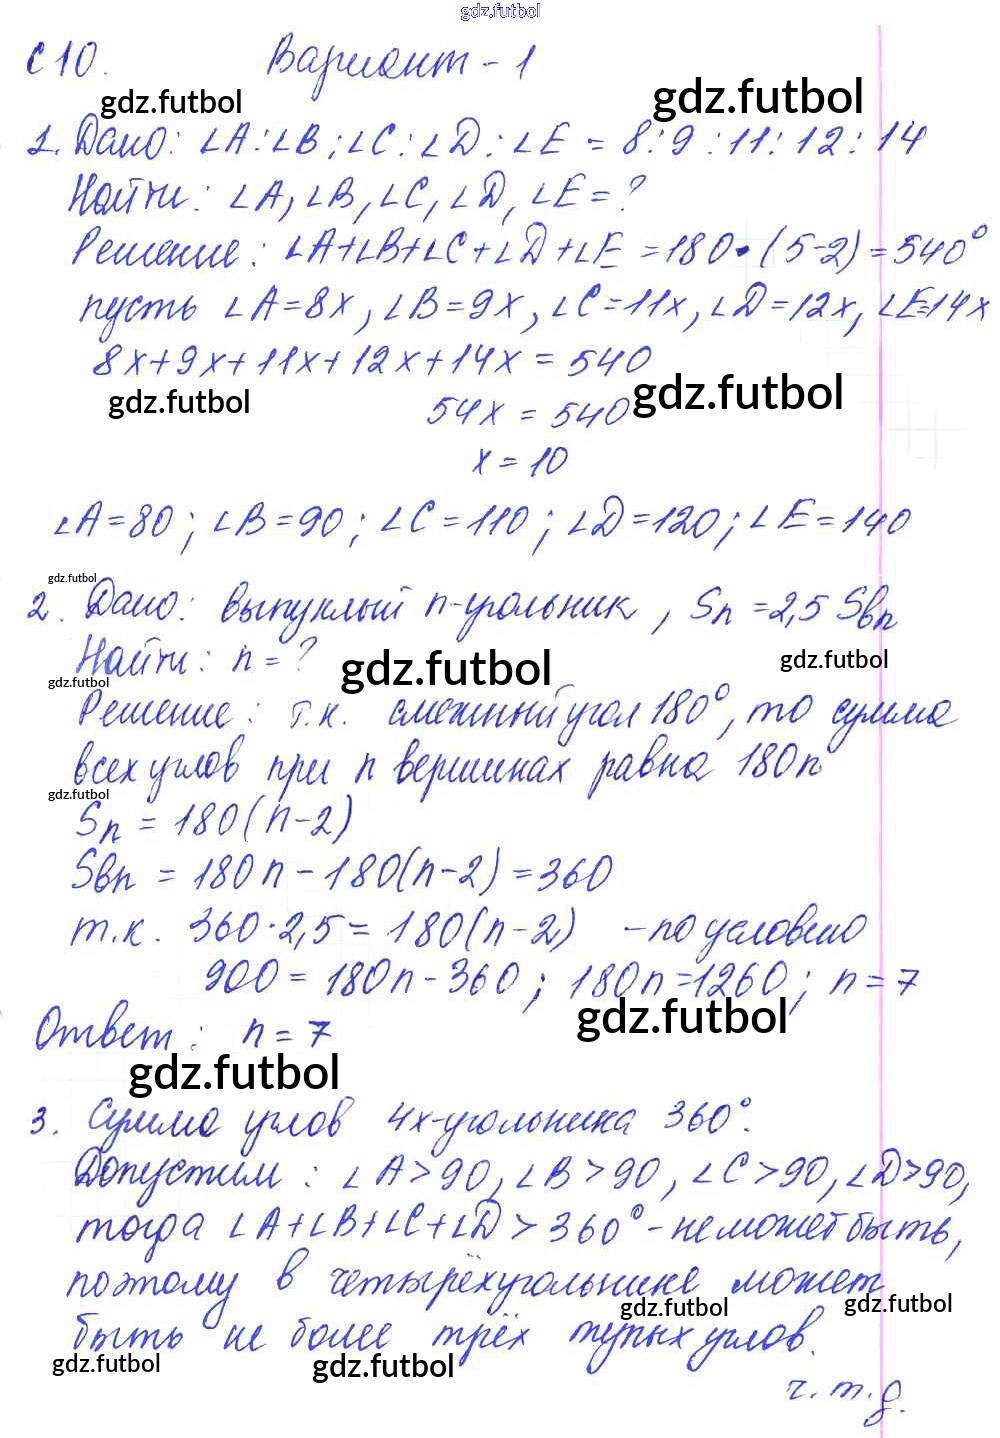 gdz.futbol
С10. Вариант - 1
gdz.futbol gdz.futbol
1. Дано: ∠A:∠B:∠C:∠D:∠E = 8:9:11:12:14
Найти: ∠A, ∠B, ∠C, ∠D, ∠E = ?
Решение: ∠A+∠B+∠C+∠D+∠E = 180·(5-2) = 540°
пусть ∠A=8x, ∠B=9x, ∠C=11x, ∠D=12x, ∠E=14x
8x+9x+11x+12x+14x = 540
gdz.futbol gdz.futbol
54x = 540
x = 10
∠A=80; ∠B=90; ∠C=110; ∠D=120; ∠E=140
gdz.futbol
2. Дано: выпуклый n-угольник, Sn = 2,5 Sвn
Найти: n = ?
gdz.futbol gdz.futbol
gdz.futbol
Решение: т.к. смежный угол 180°, то сумма
всех углов при n вершинах равна 180n
gdz.futbol
Sn = 180(n-2)
Sвn = 180n - 180(n-2) = 360
т.к. 360·2,5 = 180(n-2) - по условию
900 = 180n - 360; 180n = 1260; n = 7
gdz.futbol
Ответ: n = 7
gdz.futbol
3. Сумма углов 4х-угольника 360°.
Допустим: ∠A>90, ∠B>90, ∠C>90, ∠D>90,
тогда ∠A+∠B+∠C+∠D > 360° - не может быть,
поэтому в четырёхугольнике может
gdz.futbol gdz.futbol
быть не более трёх тупых углов.
gdz.futbol gdz.futbol
ч.т.д.